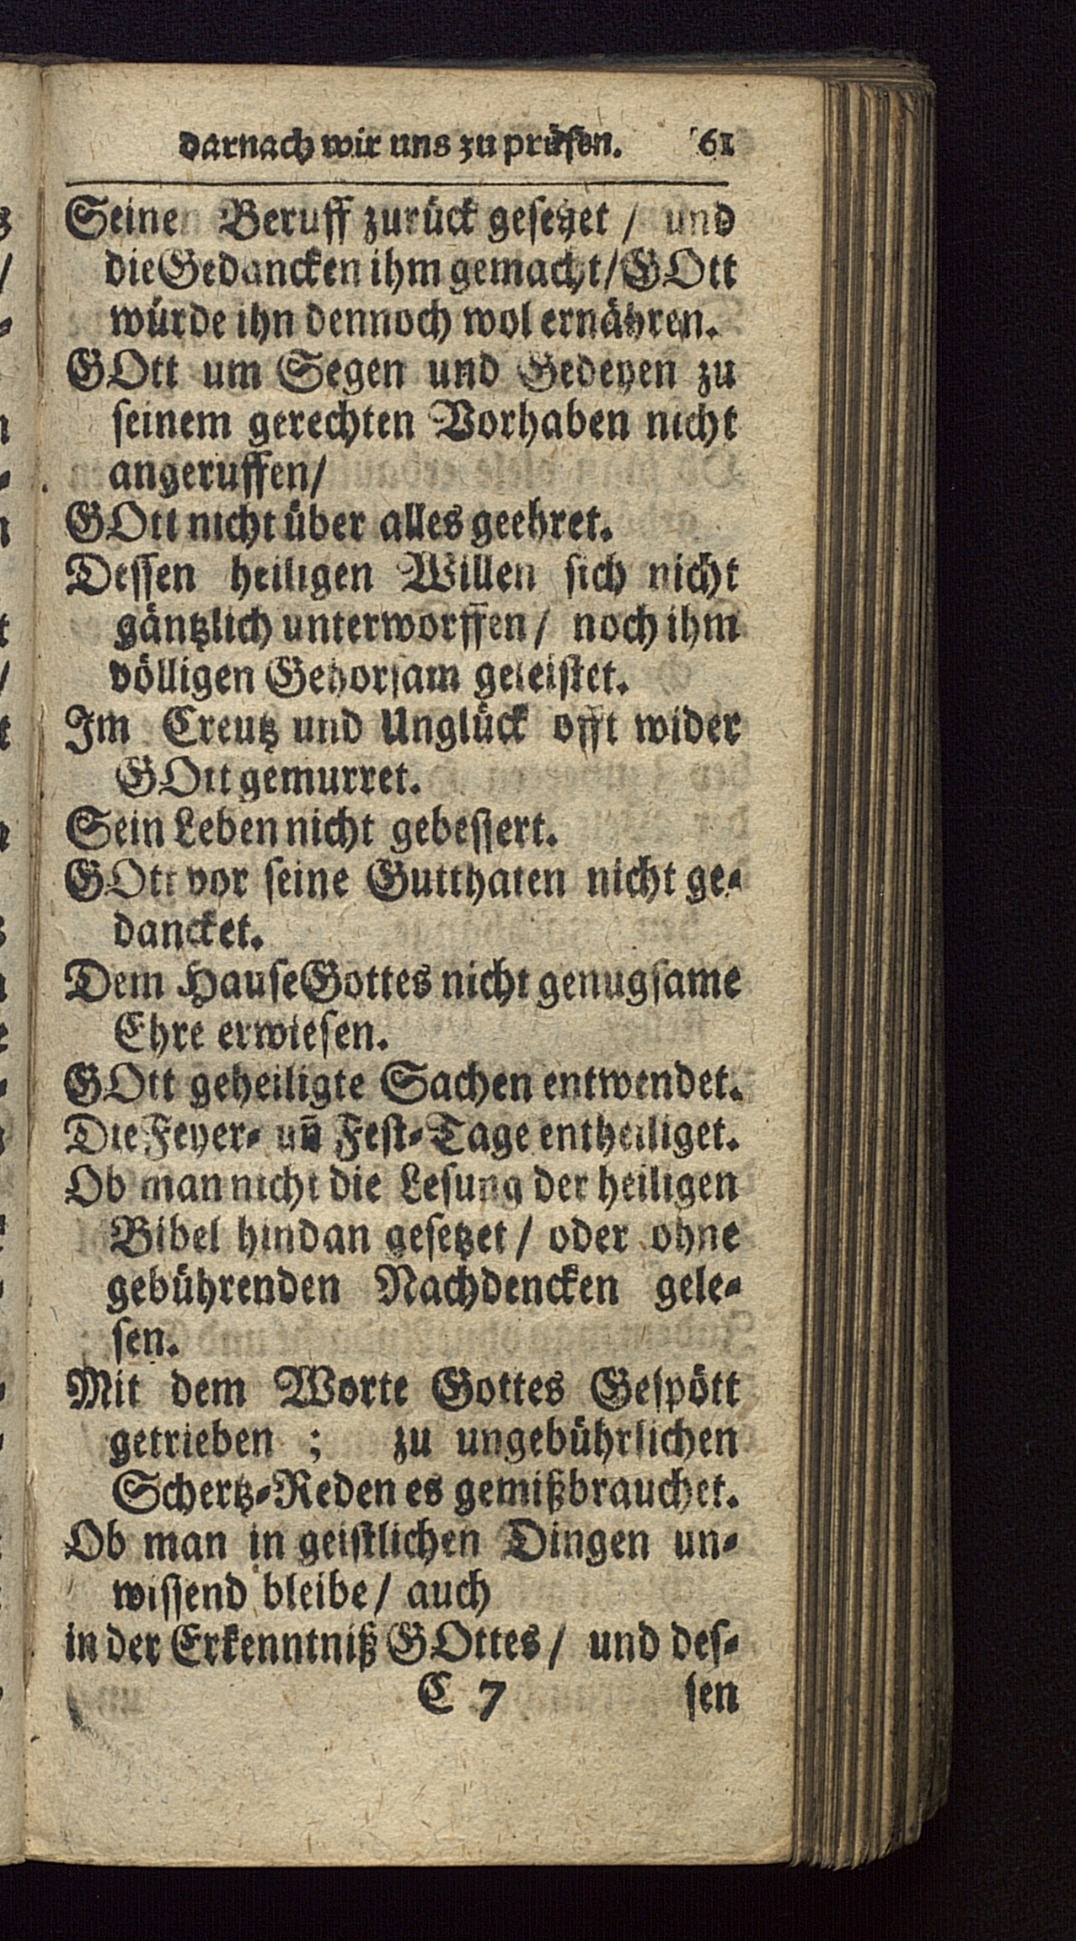 darnach wir uns zu prüfen. 61
Seinen Beruff zurück gesetzet / und
die Gedancken ihm gemacht / GOtt
würde ihn dennoch wol ernähren.
GOtt um Segen und Gedeyen zu
seinem gerechten Vorhaben nicht
angeruffen/
GOtt nicht über alles geehret.
Dessen heiligen Willen sich nicht
gäntzlich unterworffen / noch ihm
völligen Gehorsam geleistet.
Im Creutz und Unglück offt wider
GOtt gemurret.
Sein Leben nicht gebessert.
GOtt vor seine Gutthaten nicht ge-
dancket.
Dem Hause Gottes nicht genugsame
Ehre erwiesen.
GOtt geheiligte Sachen entwendet.
Die Feyer- un̄ Fest-Tage entheiliget.
Ob man nicht die Lesung der heiligen
Bibel hindan gesetzet / oder ohne
gebührenden Nachdencken gele-
sen.
Mit dem Worte Gottes Gespött
getrieben ; zu ungebührlichen
Schertz-Reden es gemißbrauchet.
Ob man in geistlichen Dingen un-
wissend bleibe / auch
in der Erkenntniß GOttes / und des-
C 7 sen